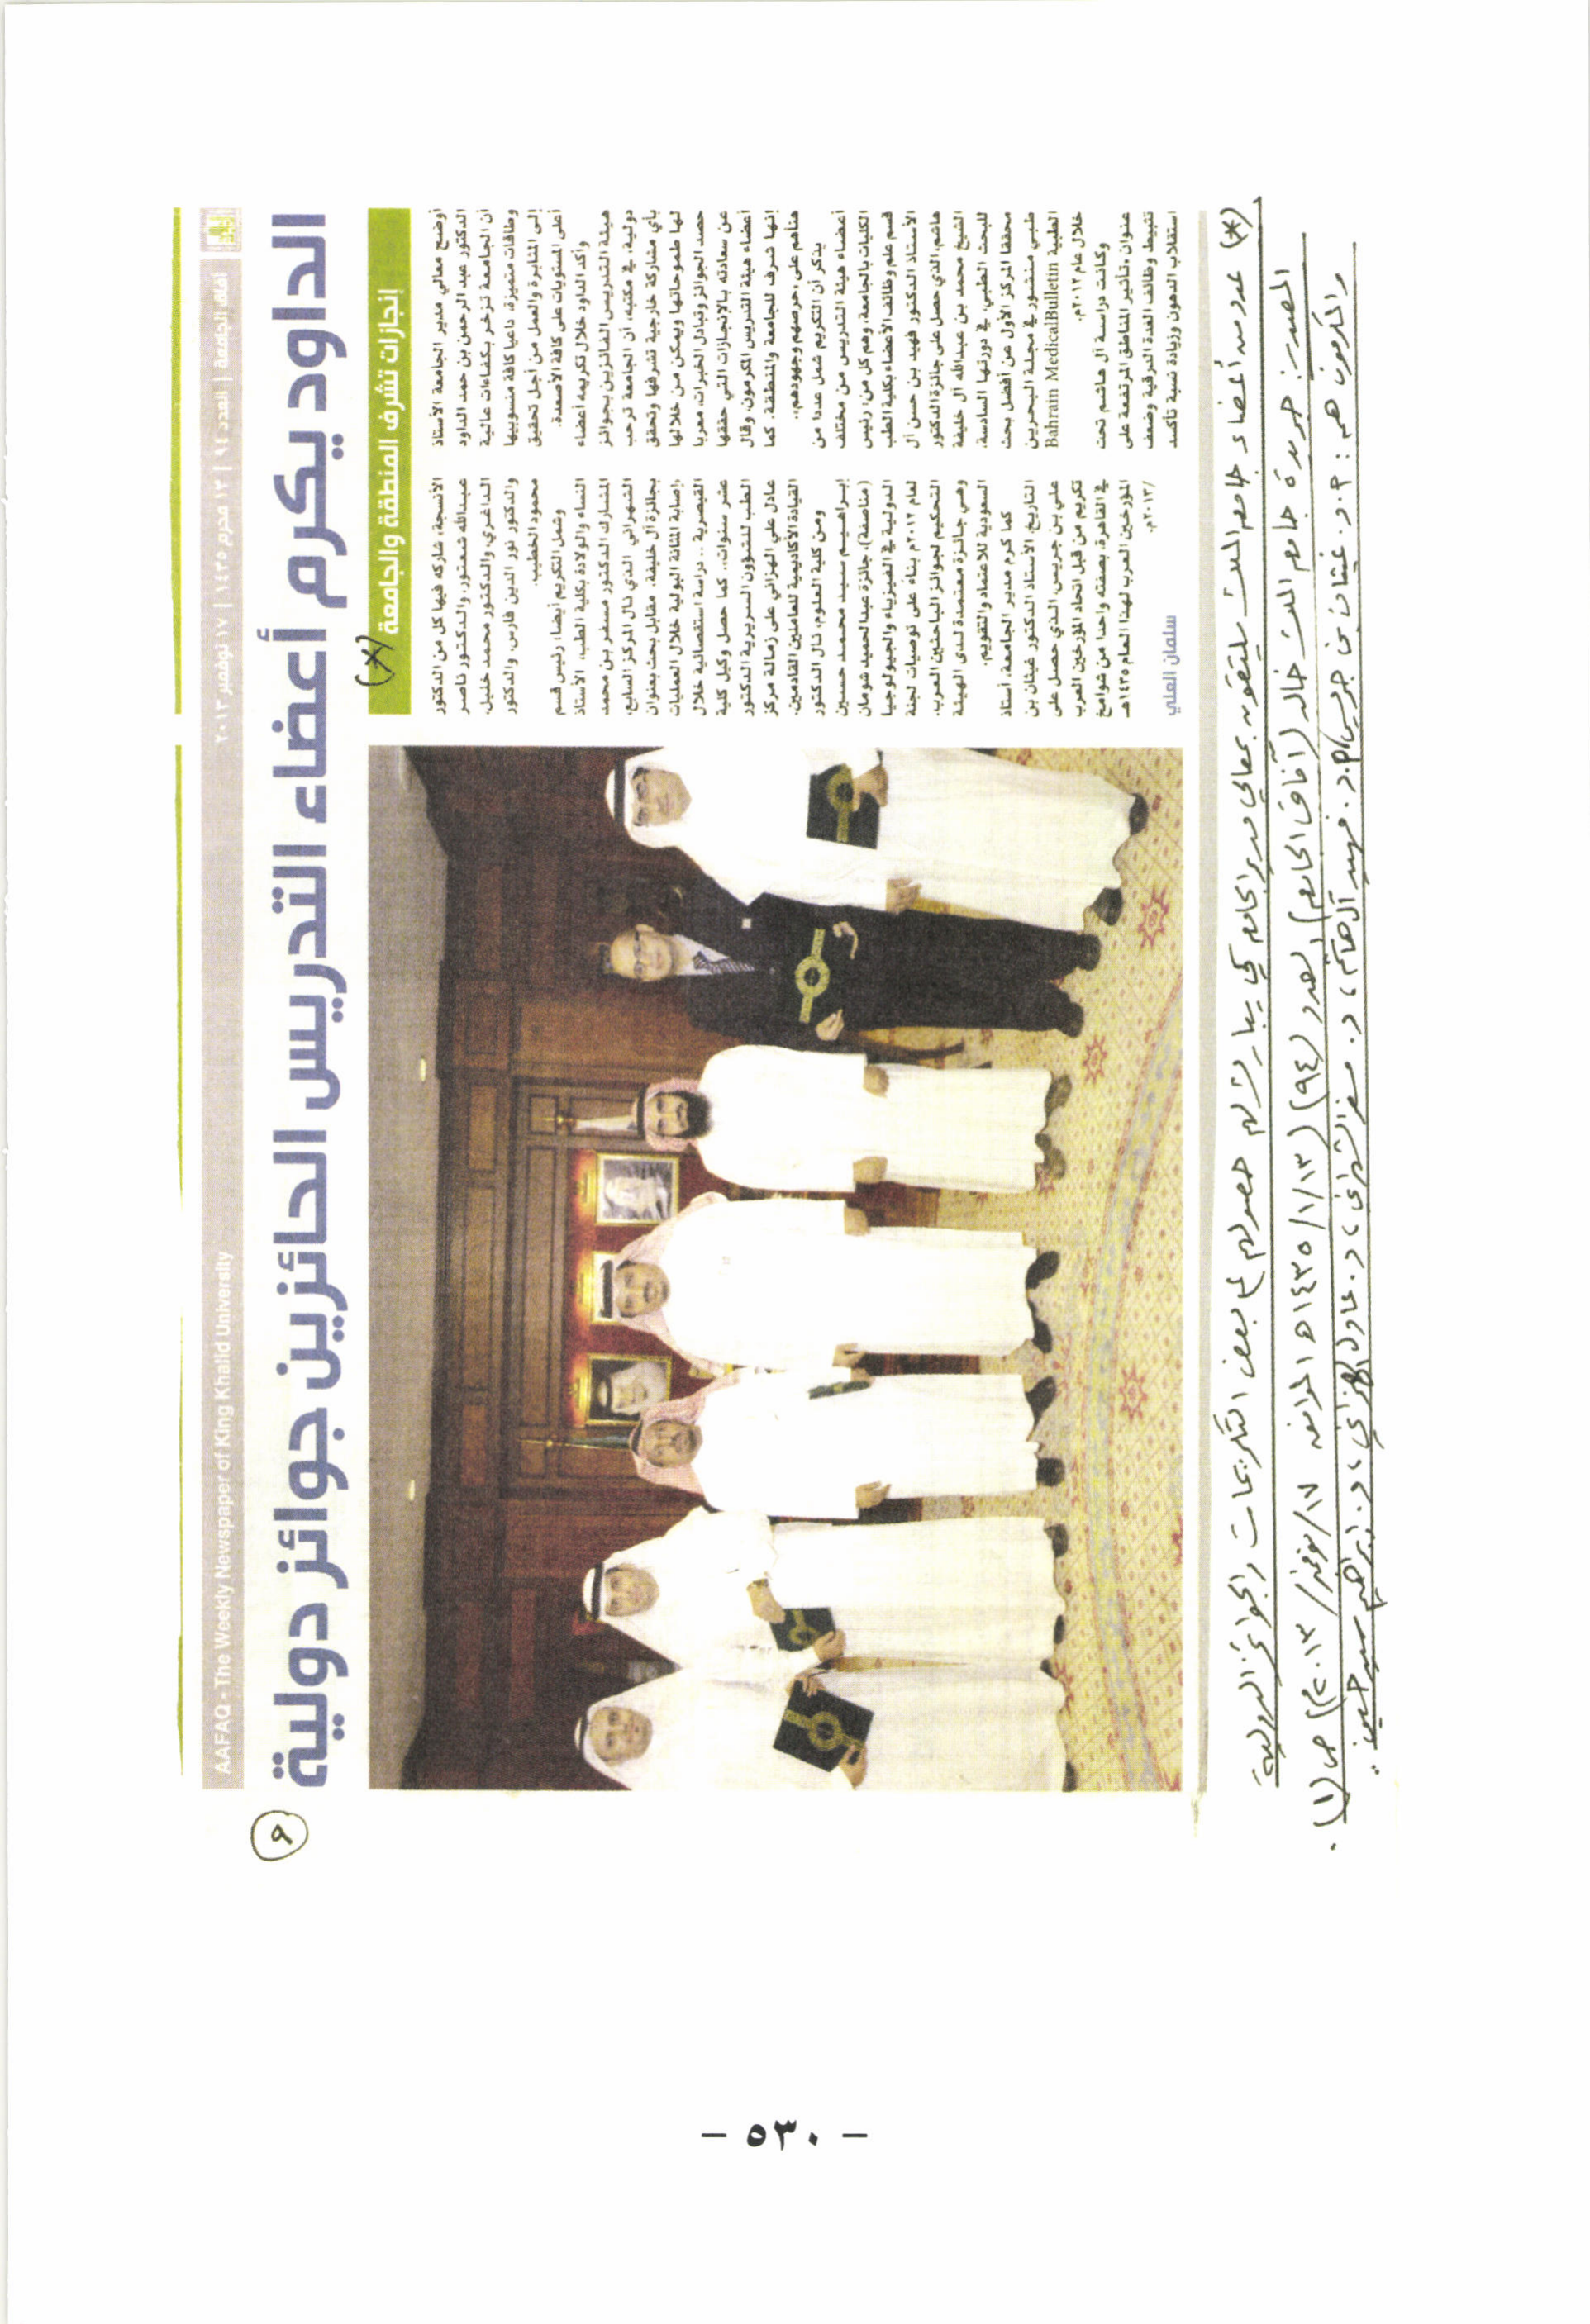 آفاق الجامعة | العدد ٩٤ | ١٣ محرم ١٤٣٥ | ١٧ نوفمبر ٢٠١٣
AAFAQ - The Weekly Newspaper of King Khalid University
٩
الداود يكرم أعضاء التدريس الحائزين جوائز دولية
إنجازات تشرف المنطقة والجامعة
(*)
أوضح معالي مدير الجامعة الأستاذ
الدكتور عبد الرحمن بن حمد الداود
أن الجامعة تزخر بكفاءات عالية
وطاقات متميزة، داعيا كافة منسوبيها
إلى المثابرة والعمل من أجل تحقيق
أعلى المستويات على كافة الأصعدة.
وأكد الداود خلال تكريمه أعضاء
هيئة التدريس الفائزين بجوائز
دولية، في مكتبه، أن الجامعة ترحب
بأي مشاركة خارجية تشرفها وتحقق
لها طموحاتها ويمكن من خلالها
حصد الجوائز وتبادل الخبرات، معربا
عن سعادته بالإنجازات التي حققها
أعضاء هيئة التدريس المكرمون، وقال
إنها شرف للجامعة والمنطقة. كما
هنأهم على «حرصهم وجهودهم».
يذكر أن التكريم شمل عددا من
أعضاء هيئة التدريس من مختلف
الكليات بالجامعة، وهم كل من: رئيس
قسم علم وظائف الأعضاء بكلية الطب
الأستاذ الدكتور فهيد بن حسن آل
هاشم، الذي حصل على جائزة الدكتور
الشيخ محمد بن عبدالله آل خليفة
للبحث الطبي، في دورتها السادسة،
محققا المركز الأول عن أفضل بحث
طبي منشور في مجلة البحرين
الطبية Bahrain MedicalBulletin
خلال عام ٢٠١٢م.
وكانت دراسة آل هاشم تحت
عنوان «تأثير المناطق المرتفعة على
تثبيط وظائف الغدة الدرقية وضعف
استقلاب الدهون وزيادة نسبة تأكسد
الأنسجة، شاركه فيها كل من الدكتور
عبدالله شعتور، والدكتور ناصر
الداغري، والدكتور محمد خليل،
والدكتور نور الدين فارس، والدكتور
محمود الخطيب.
وشمل التكريم أيضا: رئيس قسم
النساء والولادة بكلية الطب، الأستاذ
المشارك الدكتور مسفر بن محمد
الشهراني الذي نال المركز السابع،
بجائزة آل خليفة، مقابل بحث بعنوان
«إصابة المثانة البولية خلال العمليات
القيصرية .. دراسة استقصائية خلال
عشر سنوات». كما حصل وكيل كلية
الطب للشؤون السريرية الدكتور
عادل علي الهزاني على زمالة مركز
القيادة الأكاديمية للعاملين القادمين.
ومن كلية العلوم، نال الدكتور
إبراهيم سيد محمد حسين
(مناصفة)، جائزة عبدالحميد شومان
الدولية في الفيزياء والجيولوجيا
لعام ٢٠١٢م بناء على توصيات لجنة
التحكيم لجوائز الباحثين العرب.
وهي جائزة معتمدة لدى الهيئة
السعودية للاعتماد والتقويم.
كما كرم مدير الجامعة، أستاذ
التاريخ، الأستاذ الدكتور غيثان بن
علي بن جريس، الذي حصل على
تكريم من قبل اتحاد المؤرخين العرب
في القاهرة، بصفته واحدا من شوامخ
المؤرخين العرب لهذا العام ١٤٣٥هـ
/٢٠١٣م.
سلمان العلي
(*) عدد من أعضاء جامعة الملك يلتقون بمعالي مدير الجامعة كي يبارك لهم حصولهم على بعض التكريمات والجوائز الدولية
المصدر: جريدة جامعة الملك خالد (آفاق الجامعة) العدد (٩٤) (١٣/١/١٤٣٥هـ الموافق ١٧/نوفمبر/٢٠١٣م) ص (١).
والمكرمون هم: أ.د. غيثان بن جريس، أ.د. فهيد آل هاشم، د. مسفر الشهراني، د. عادل الهزاني، د. إبراهيم سيد حسين ..
- ٥٣٠ -